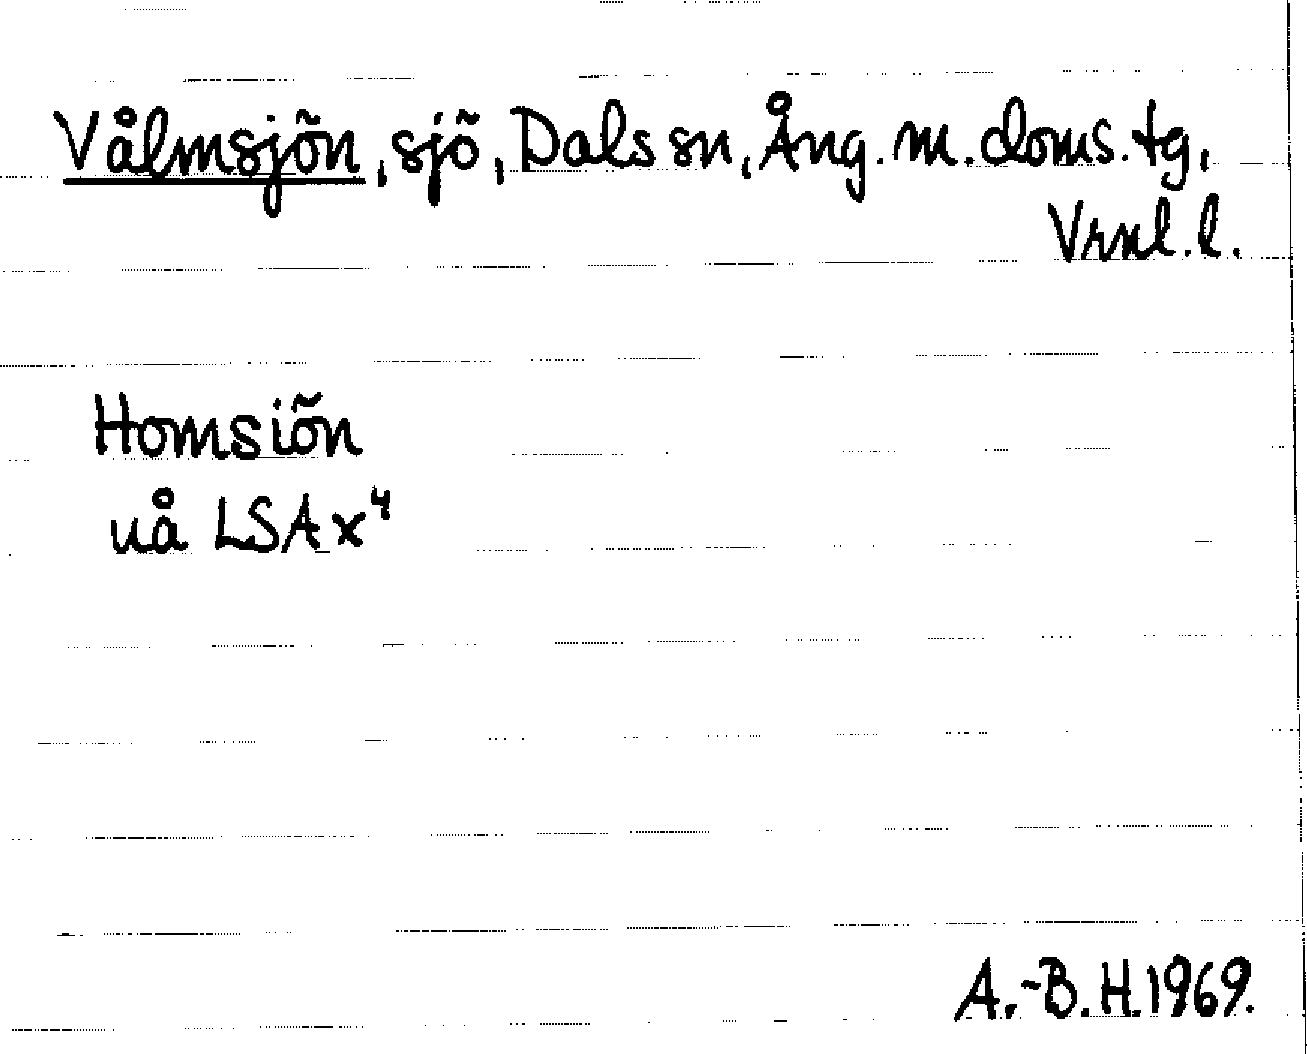 Vålmsjön, sjö, Dals sn, Ång. m. doms. tg,
Vrnl. l.
Homsiön
uå LSA x⁴
A.-B.H. 1969.